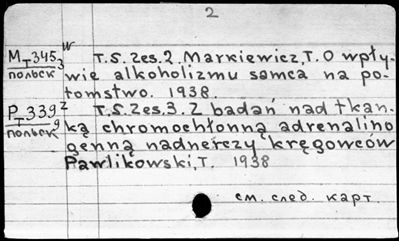 2
М_T345₃ w T.S. Zes.2. Markiewicz,T. O wpły-
польск wie alkoholizmu samca na po-
tomstwo. 1938.
P_T339₉ 2 T.S. Zes.3. Z badań nad tkan-
польск ką chromochłonną adrenalino
genną nadnerczy kręgowców
Pawlikowski,T. 1938
см. след. карт.